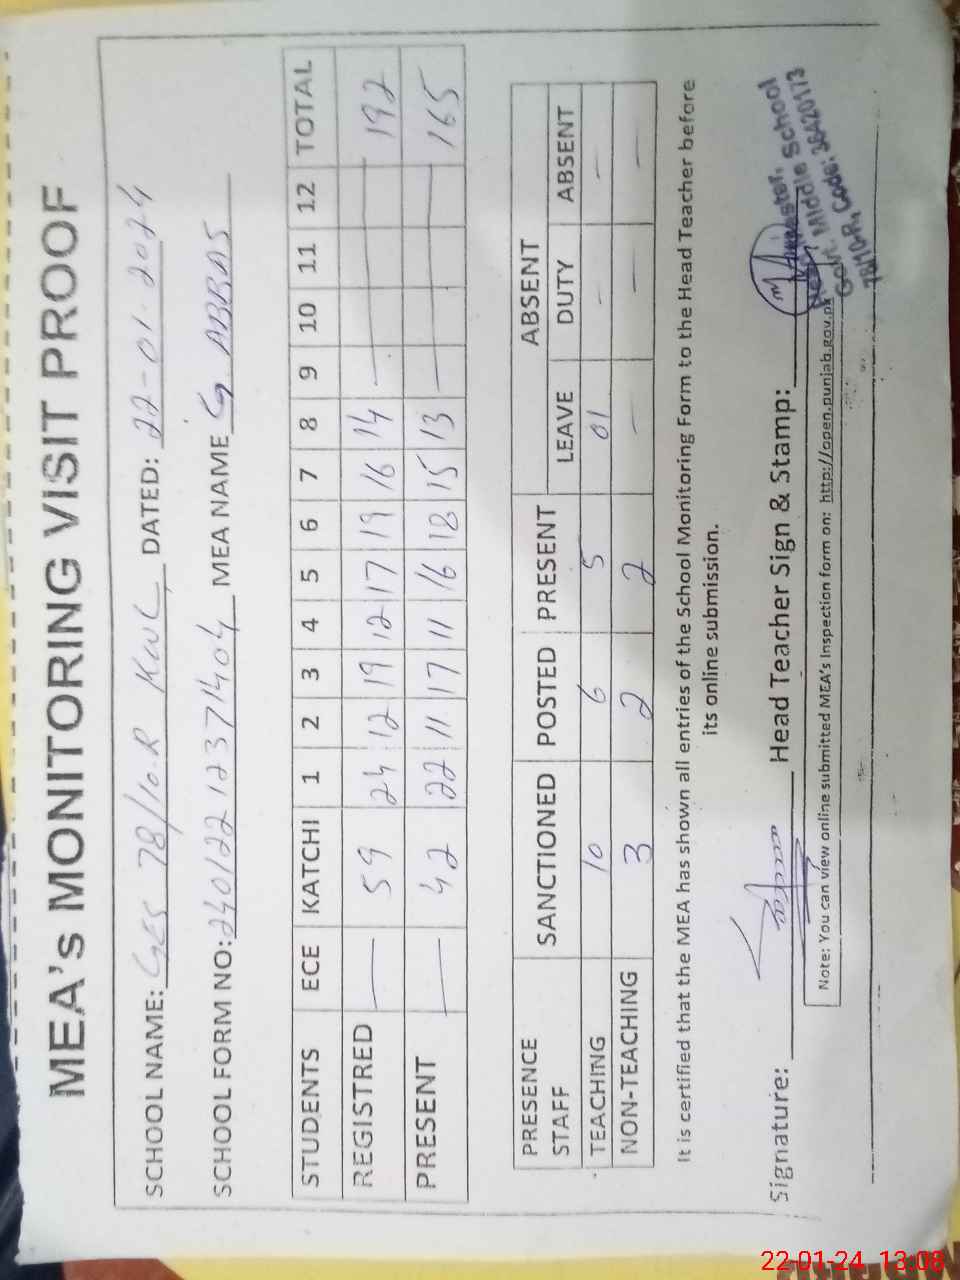 MEA's MONITORING VISIT PROOF
SCHOOL NAME: GES 78/10.R KWL DATED: 22-01-2024
SCHOOL FORM NO: 24012212371404 MEA NAME G. ABBAS
STUDENTS ECE KATCHI 1 2 3 4 5 6 7 8 9 10 11 12 TOTAL
REGISTRED — 59 24 12 19 12 17 19 16 14 — 192
PRESENT — 42 22 11 17 11 16 18 15 13 — 165
PRESENCE STAFF SANCTIONED POSTED PRESENT ABSENT
LEAVE DUTY ABSENT
TEACHING 10 6 5 01 — —
NON-TEACHING 3 2 2 — — —
It is certified that the MEA has shown all entries of the School Monitoring Form to the Head Teacher before
its online submission.
Signature: Head Teacher Sign & Stamp:
Headmaster,
Govt. Middle School
78/10R, Code: 36420173
Note: You can view online submitted MEA's Inspection form on: http://open.punjab.gov.pk
22-01-24 13:08